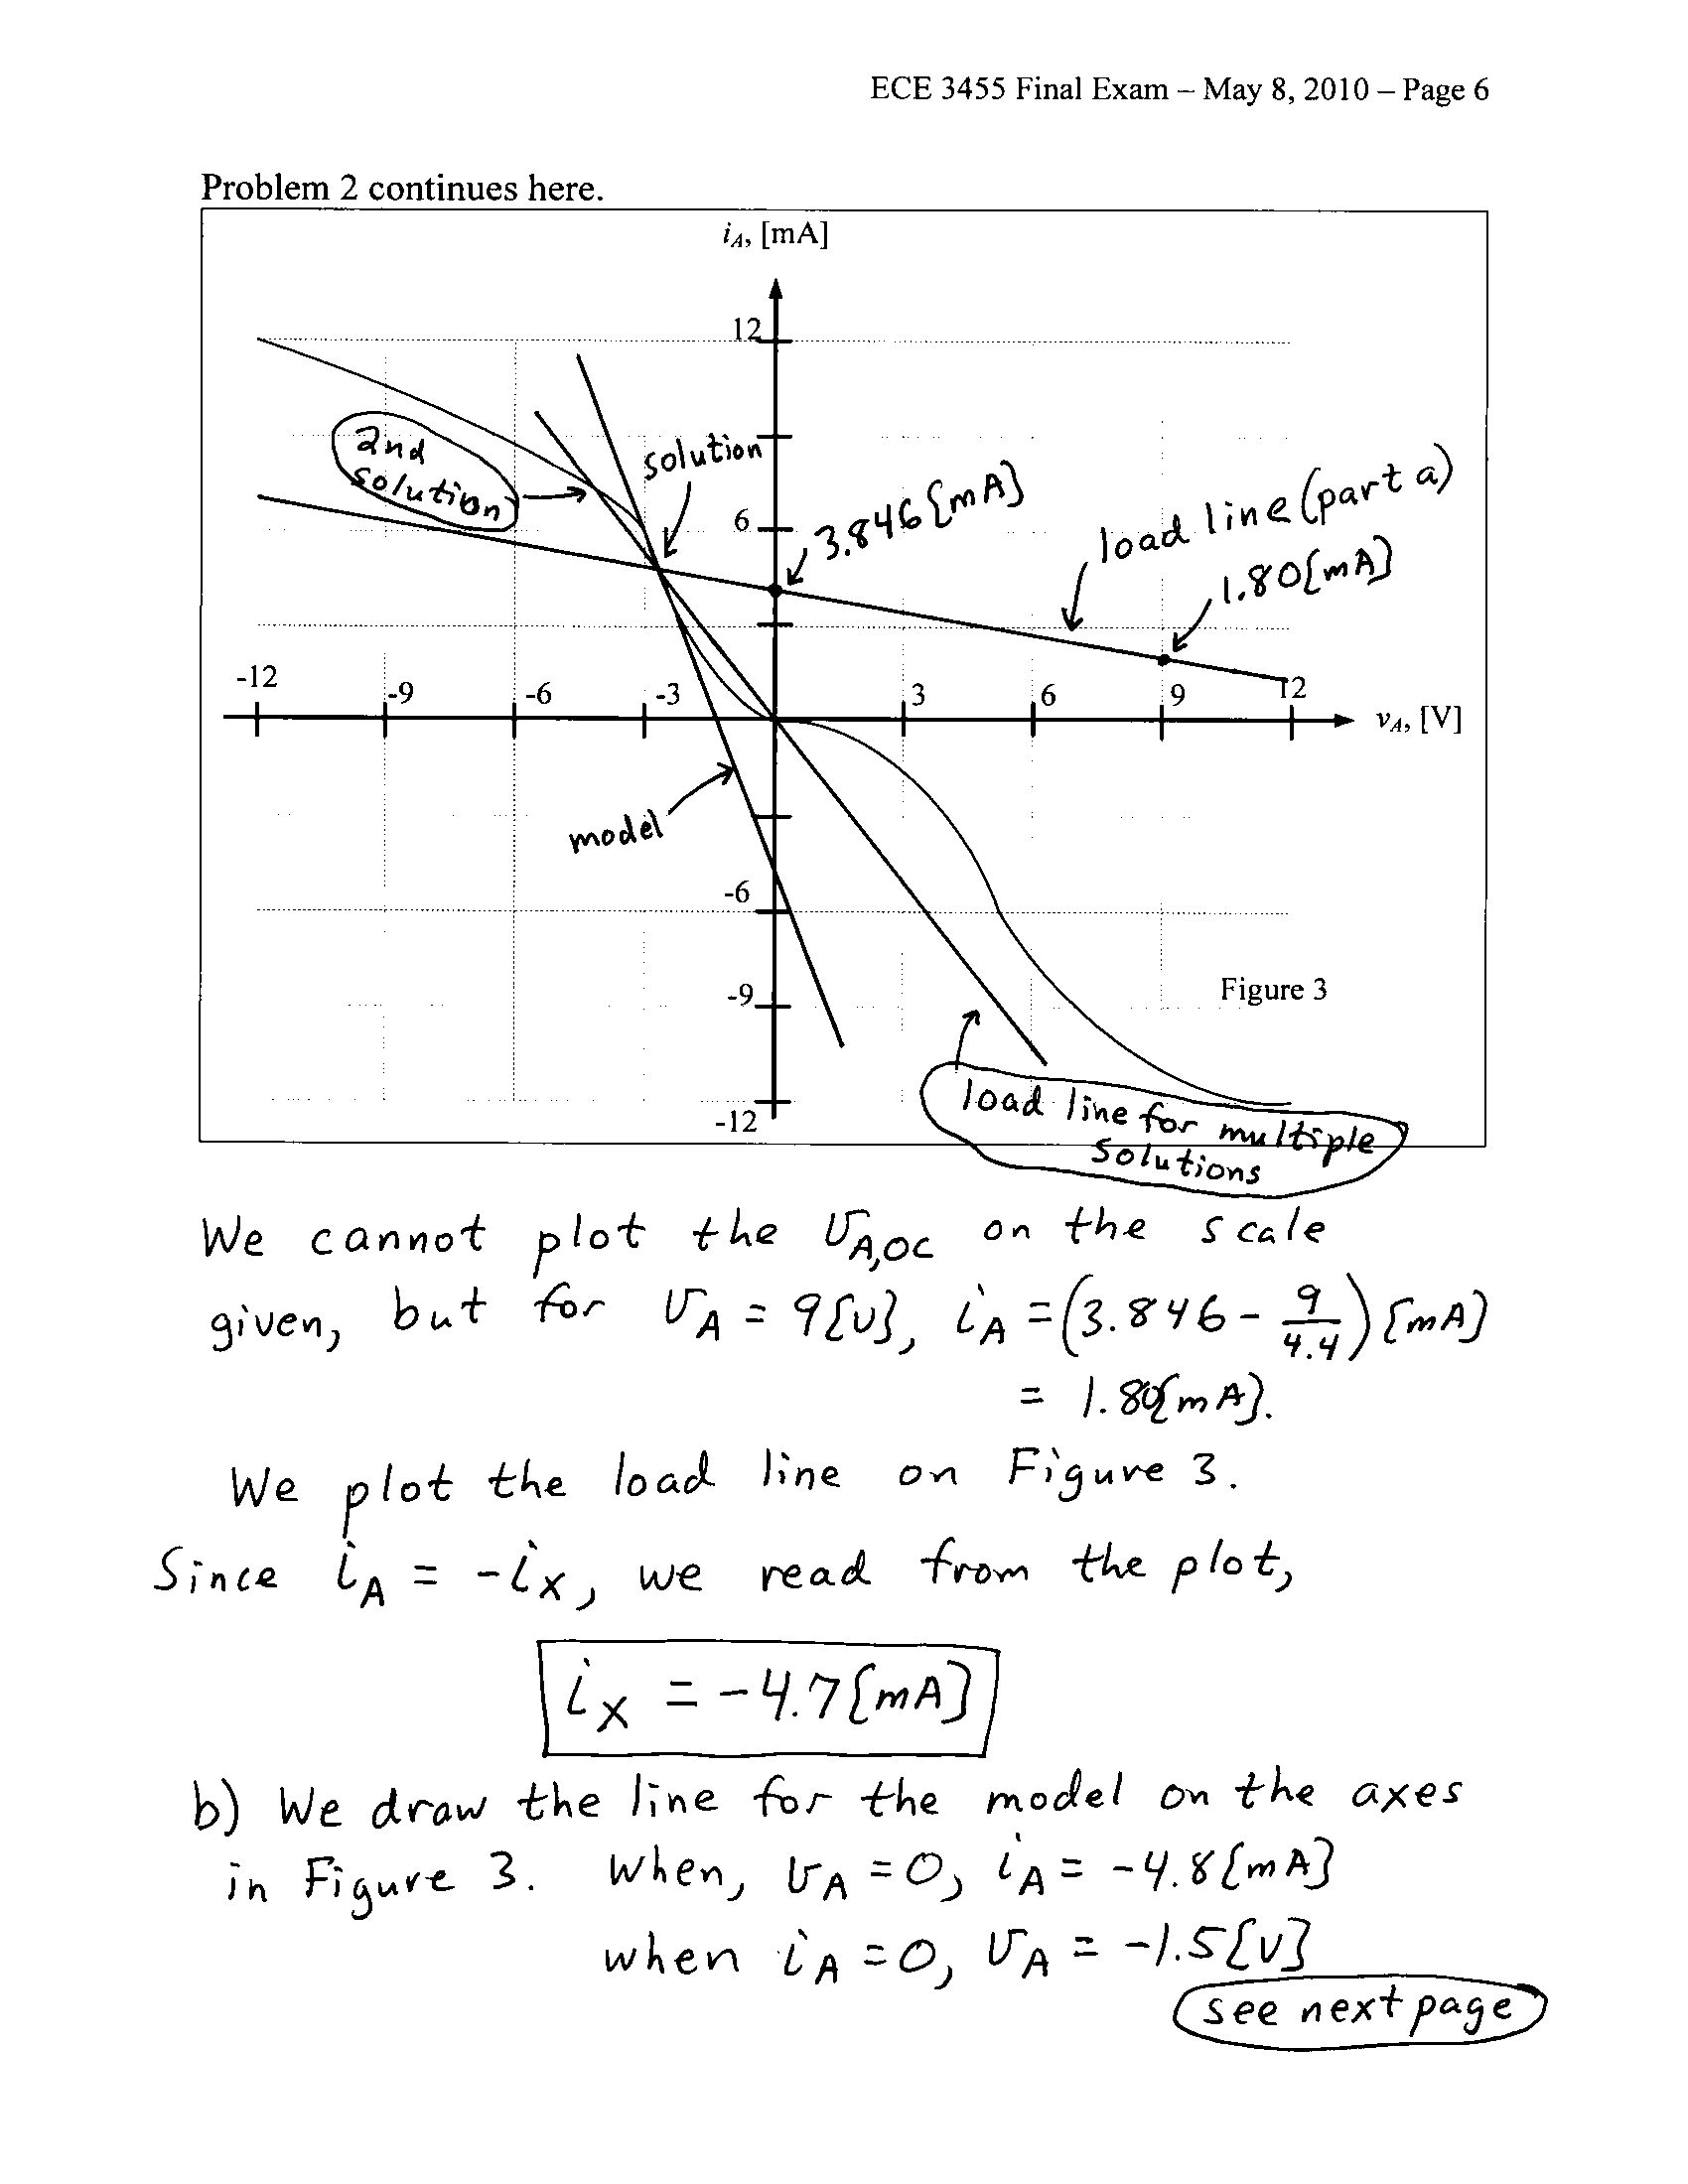 ECE 3455 Final Exam – May 8, 2010 – Page 6
Problem 2 continues here.
iA, [mA]
12
2nd
solution
solution
6
3.846{mA}
load line (part a)
1.80{mA}
-12
-9
-6
-3
3
6
9
12
vA, [V]
model
-6
-9
Figure 3
-12
load line for multiple
solutions
We cannot plot the vA,OC on the scale
given, but for vA = 9{v}, iA = (3.846 - 9/4.4) {mA}
= 1.80{mA}.
We plot the load line on Figure 3.
Since iA = -iX, we read from the plot,
iX = -4.7{mA}
b) We draw the line for the model on the axes
in Figure 3. When, vA = 0, iA = -4.8{mA}
when iA = 0, vA = -1.5{v}
see next page